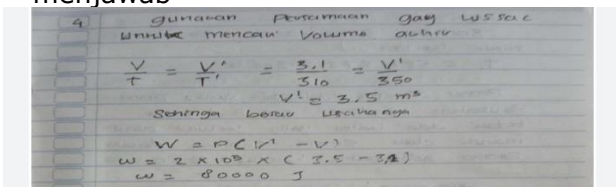 menjawab
4 gunakan Persamaan gay Lussac
Untuk mencari Volume akhir
V/T = V'/T' = 3.1/310 = V'/350
V' = 3.5 m³
Sehinga besar usahanya
W = P(V' - V)
W = 2 × 10⁵ × (3.5 - 3,1)
W = 80000 J